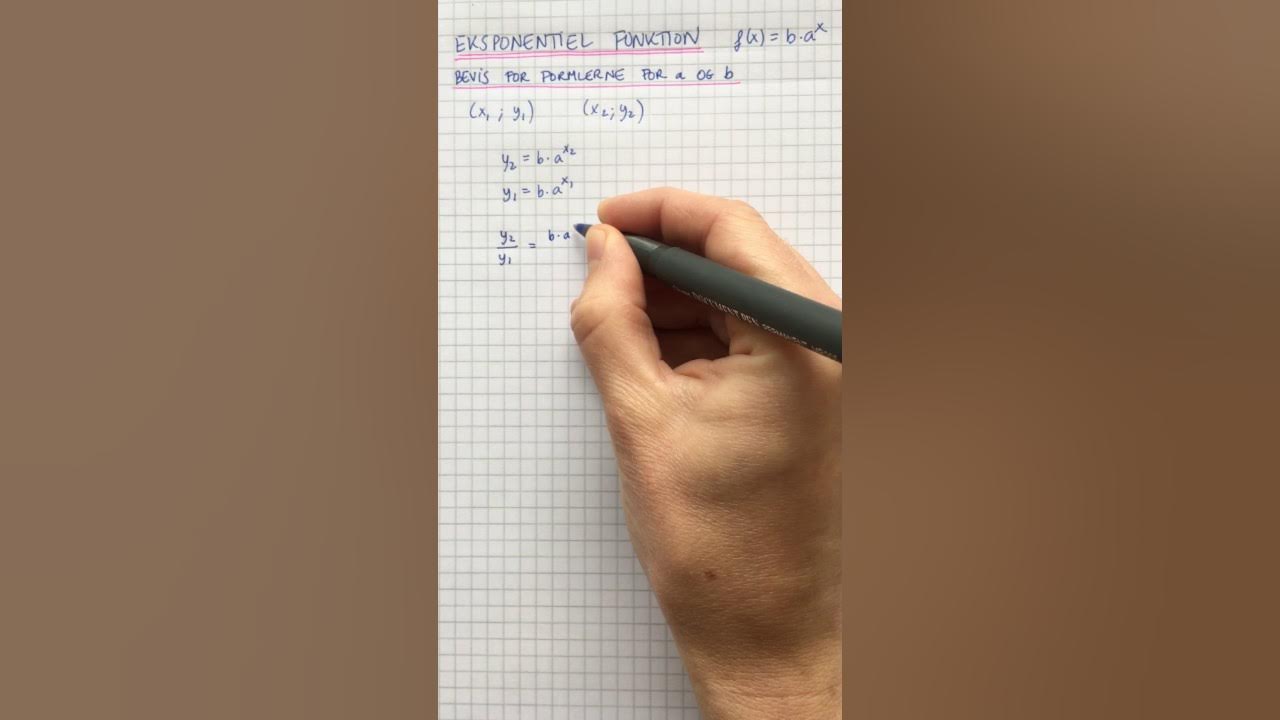 EKSPONENTIEL FUNKTION f(x) = b·a^x
BEVIS FOR FORMLERNE FOR a OG b
(x₁ ; y₁) (x₂; y₂)
y₂ = b·a^x₂
y₁ = b·a^x₁
y₂/y₁ = b·a
DOCUMENT PEN